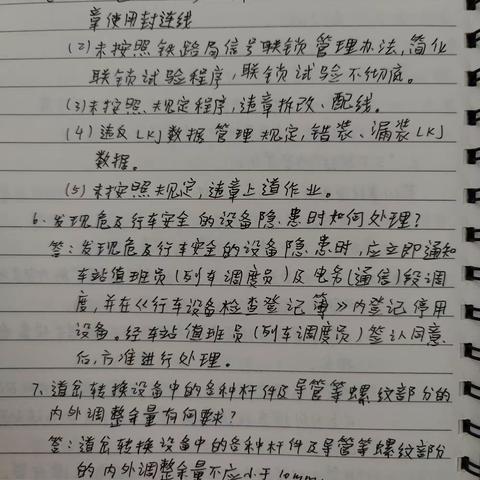 章使用封连线
(2)未按照铁路局信号联锁管理办法,简化
联锁试验程序,联锁试验不彻底。
(3)未按照规定程序,违章拆改、配线。
(4)违反LKJ数据管理规定,错装、漏装LKJ
数据。
(5)未按照规定,违章上道作业。
6、发现危及行车安全的设备隐患时如何处理?
答:发现危及行车安全的设备隐患时,应立即通知
车站值班员(列车调度员)及电务(通信)段调
度,并在《行车设备检查登记簿》内登记停用
设备。经车站值班员(列车调度员)签认同意
后,方准进行处理。
7、道岔转换设备中的各种杆件及导管等螺纹部分的
内外调整余量有何要求?
答:道岔转换设备中的各种杆件及导管等螺纹部分
的内外调整余量不应小于10mm